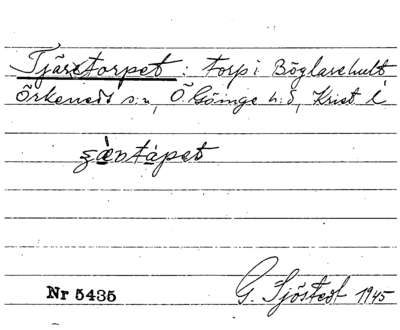 Tjärtorpet : torp i Böglarehult
Örkeneds s:n, Ö. Göinge h:d, Krist. l
Nr 5435
G. Sjöstedt 1945